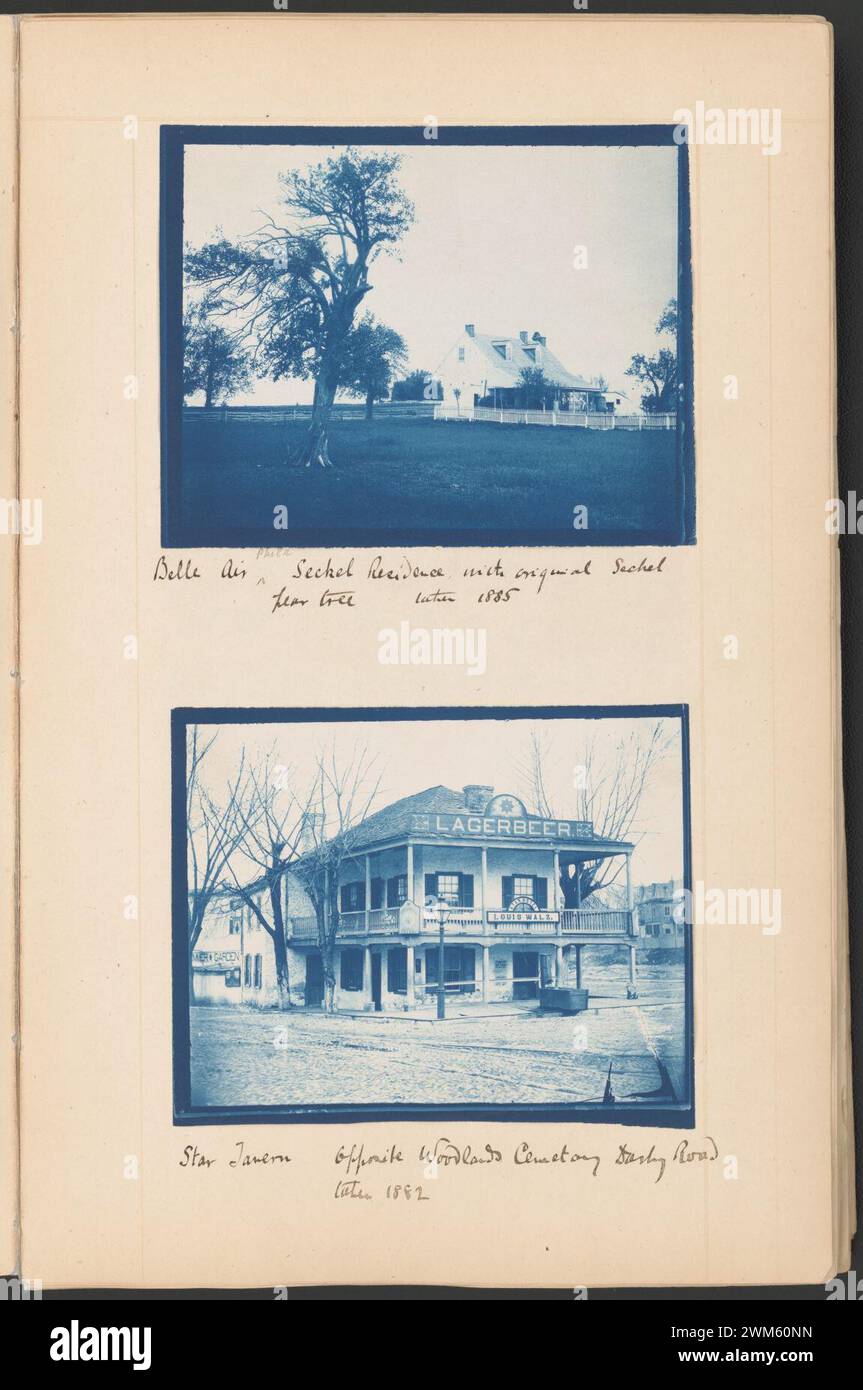 Phila
Belle Air ^ Seckel Residence, with original Seckel
pear tree taken 1885
LAGERBEER
LOUIS WALZ.
GARDEN
Star Tavern Opposite Woodlands Cemetery Darby Road
taken 1882
alamy
alamy
Image ID: 2WM60NN
www.alamy.com